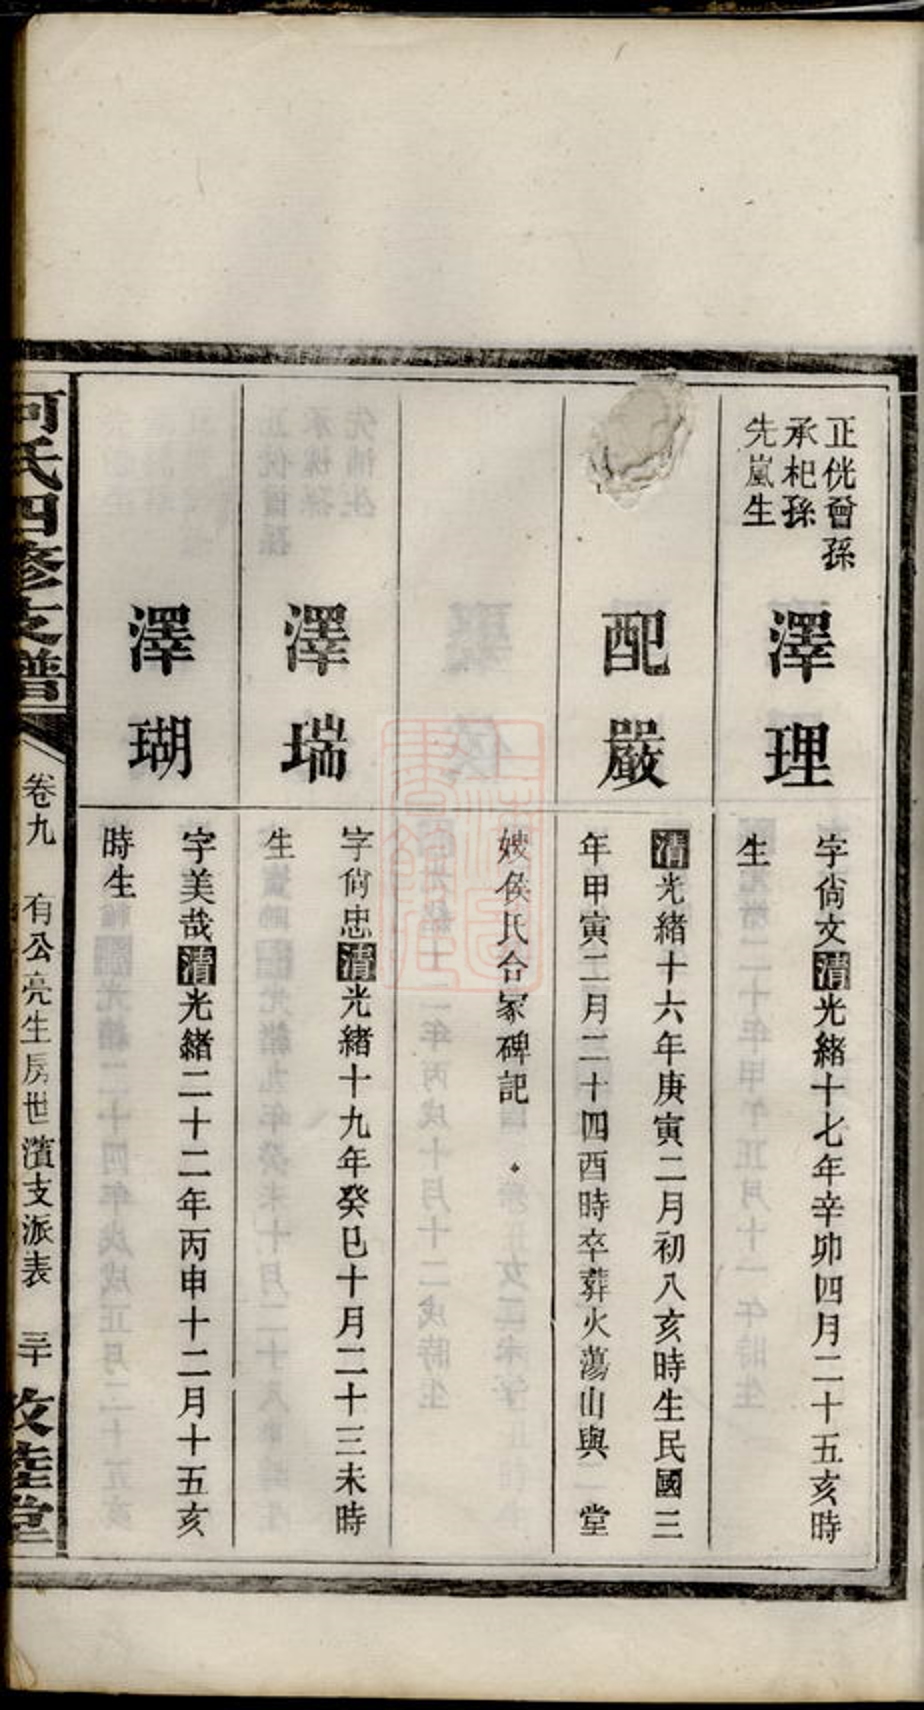 正侊曾孫
承杞孫
先嵐生
澤理
字尙文清光緒十七年辛卯四月二十五亥時
生
配嚴
清光緒十六年庚寅二月初八亥時生民國三
年甲寅二月二十四酉時卒葬火蕩山與堂
嫂侯氏合冢碑記
澤瑞
字尙忠清光緒十九年癸巳十月二十三未時
生
澤瑚
字美哉清光緒二十二年丙申十二月十五亥
時生
何氏四修支譜
卷九
有公亮生房世濱支派表
三十
敦睦堂